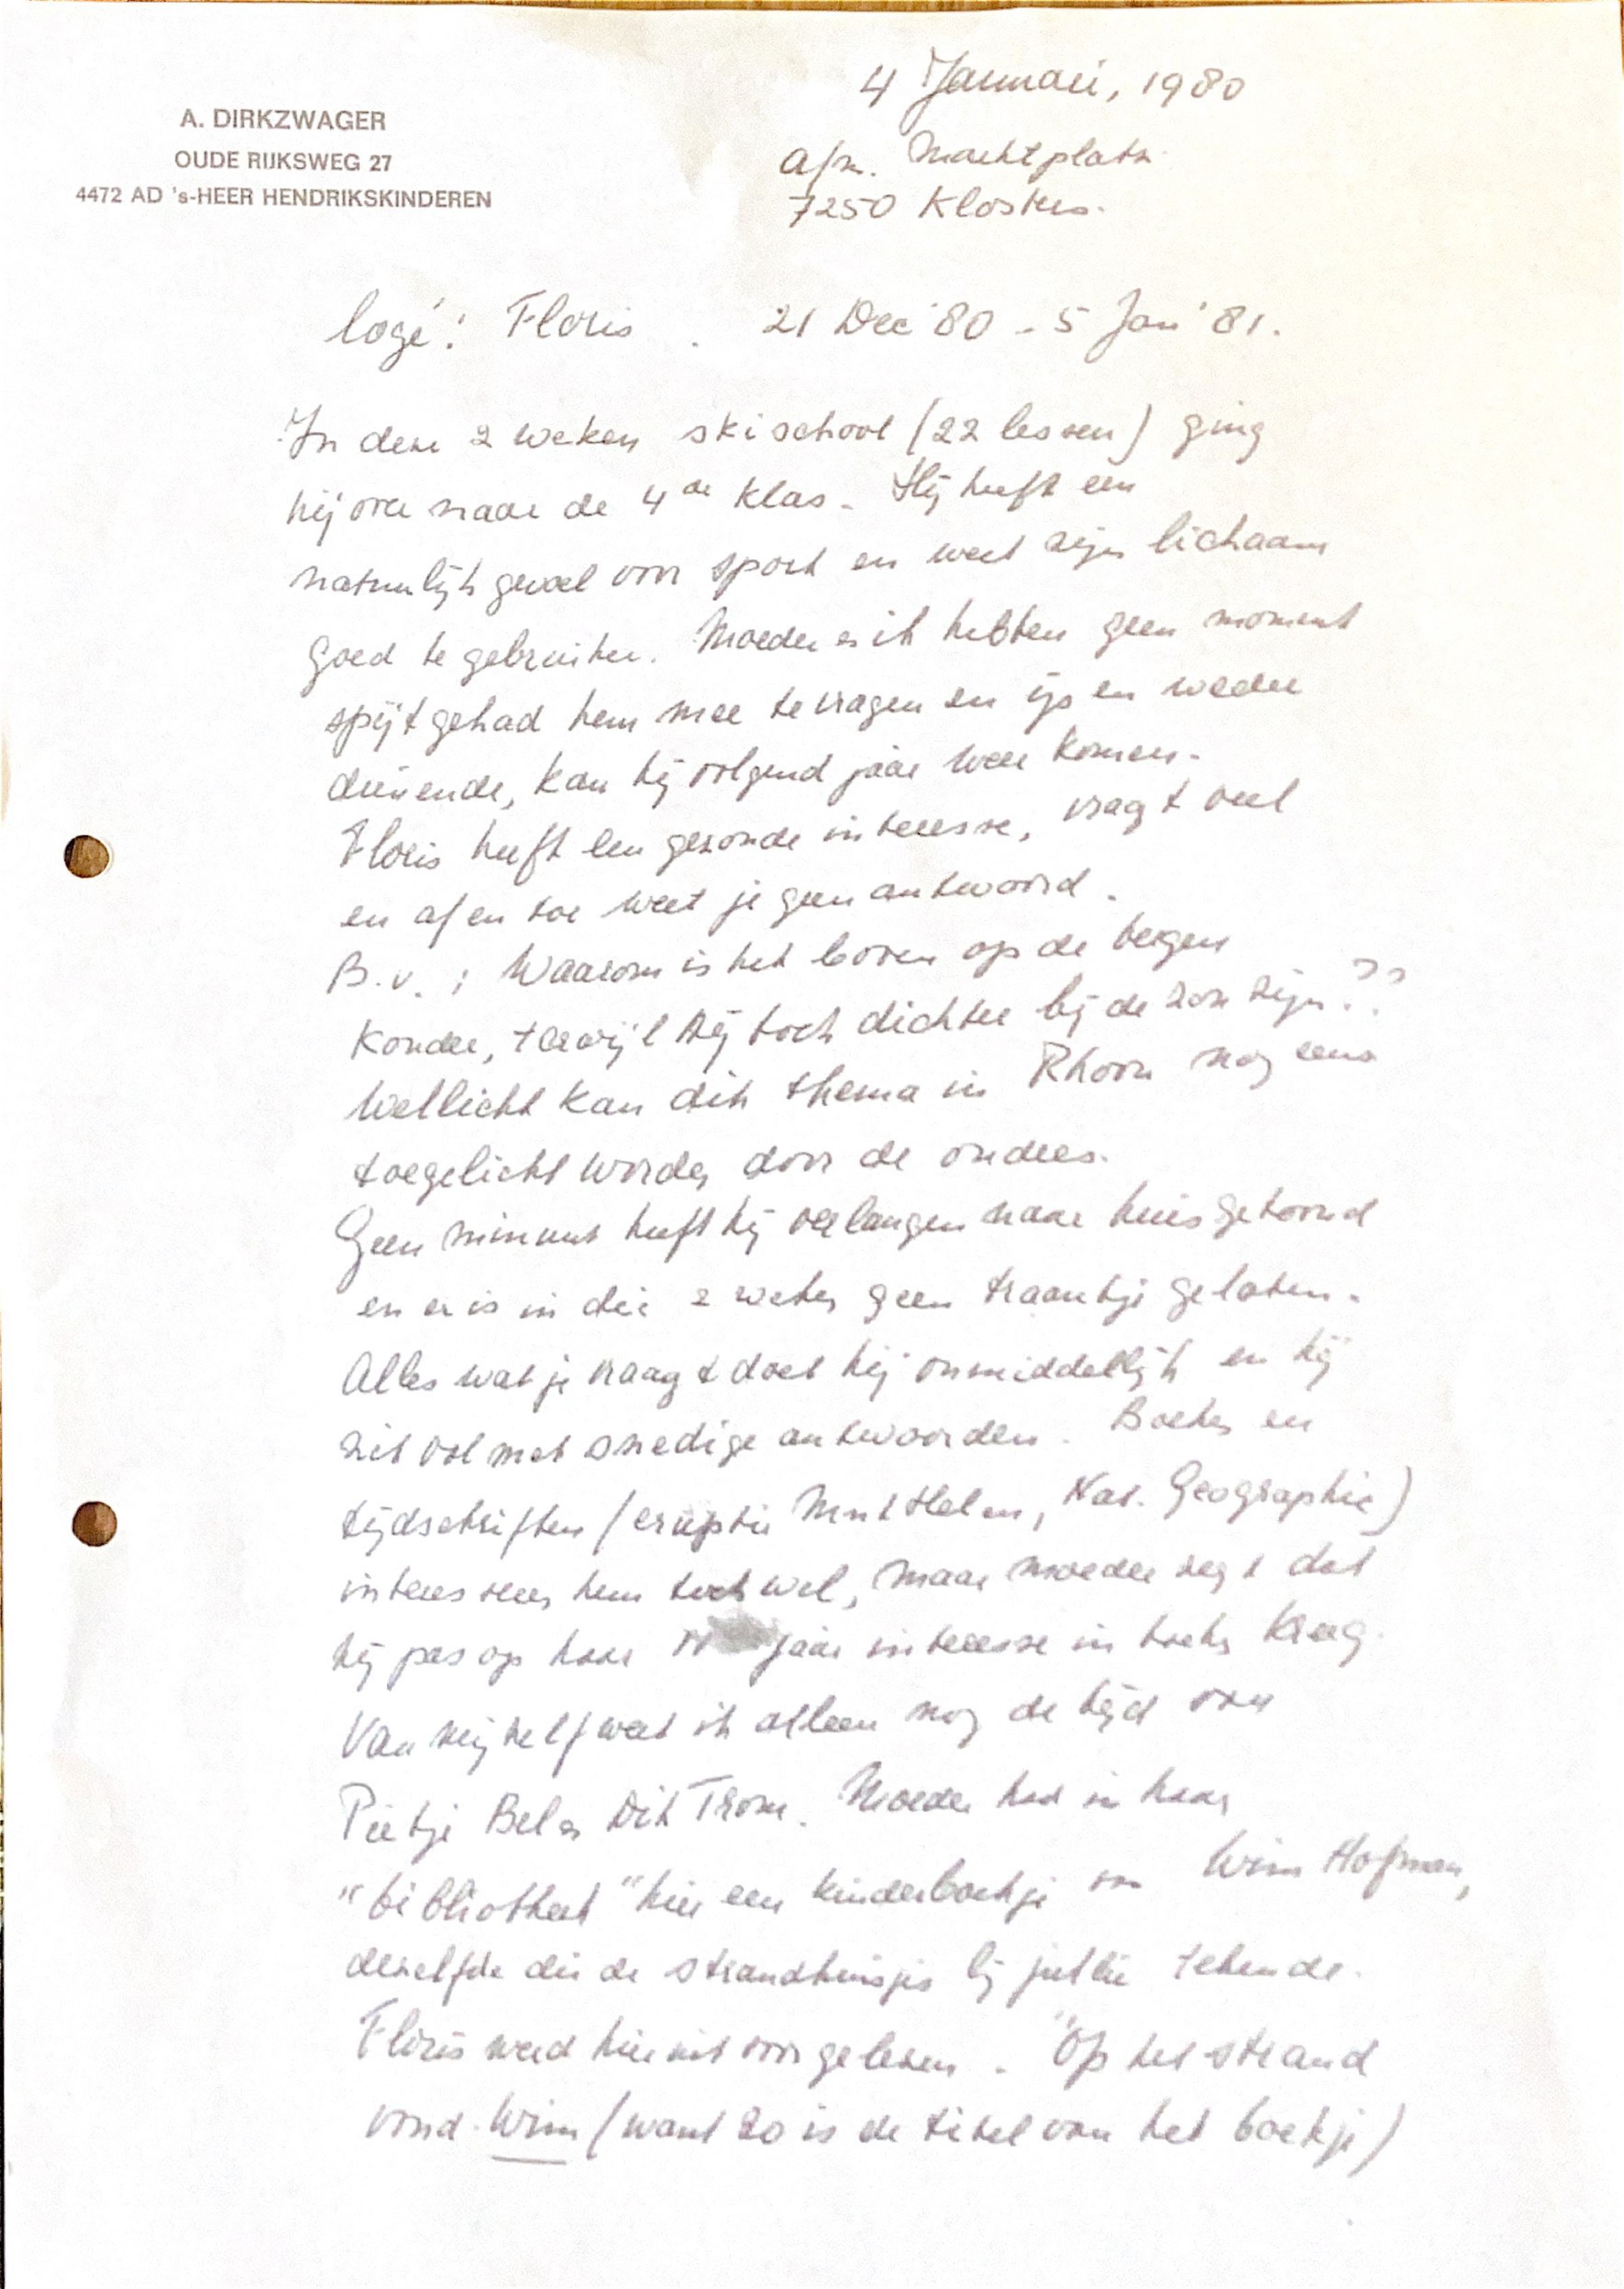 A. DIRKZWAGER
OUDE RIJKSWEG 27
4472 AD 's-HEER HENDRIKSKINDEREN
4 Januari, 1980
a/n.
7250 Klosters.
logé: Floris. 21 Dec '80 - 5 Jan '81.
In deze 2 weken skischool (22 lessen) ging
hij over naar de 4de klas. Hij heeft een
natuurlijk gevoel voor sport en weet zijn lichaam
goed te gebruiken. Moeder en ik hebben geen moment
spijt gehad hem mee te vragen en ijs en weder
dienende, kan hij volgend jaar weer komen.
Floris heeft een gezonde interesse, vraagt veel
en af en toe weet je geen antwoord.
B.v.: Waarom is het boven op de bergen
kouder, terwijl zij toch dichter bij de zon zijn??
Wellicht kan dit thema in Rhoon nog eens
toegelicht worden door de ouders.
Geen minuut heeft hij verlangen naar huis getoond
en er is in die 2 weken geen traantje gelaten.
Alles wat je vraagt doet hij onmiddellijk en hij
zit vol met snedige antwoorden. Boeken en
tijdschriften (eruptie Mnt Helen, Nat. Geographic)
interesseren hem toch wel, maar moeder zegt dat
hij pas op haar jaar interesse in boeken kreeg.
Van mijzelf weet ik alleen nog de tijd van
Pietje Bel en Dik Trom. Moeder had in haar
"bibliotheek" hier een kinderboekje van Wim Hofman,
dezelfde die de strandhuisjes bij jullie tekende.
Floris werd hieruit voorgelezen. "Op het strand
vond Wim (want zo is de titel van het boekje)